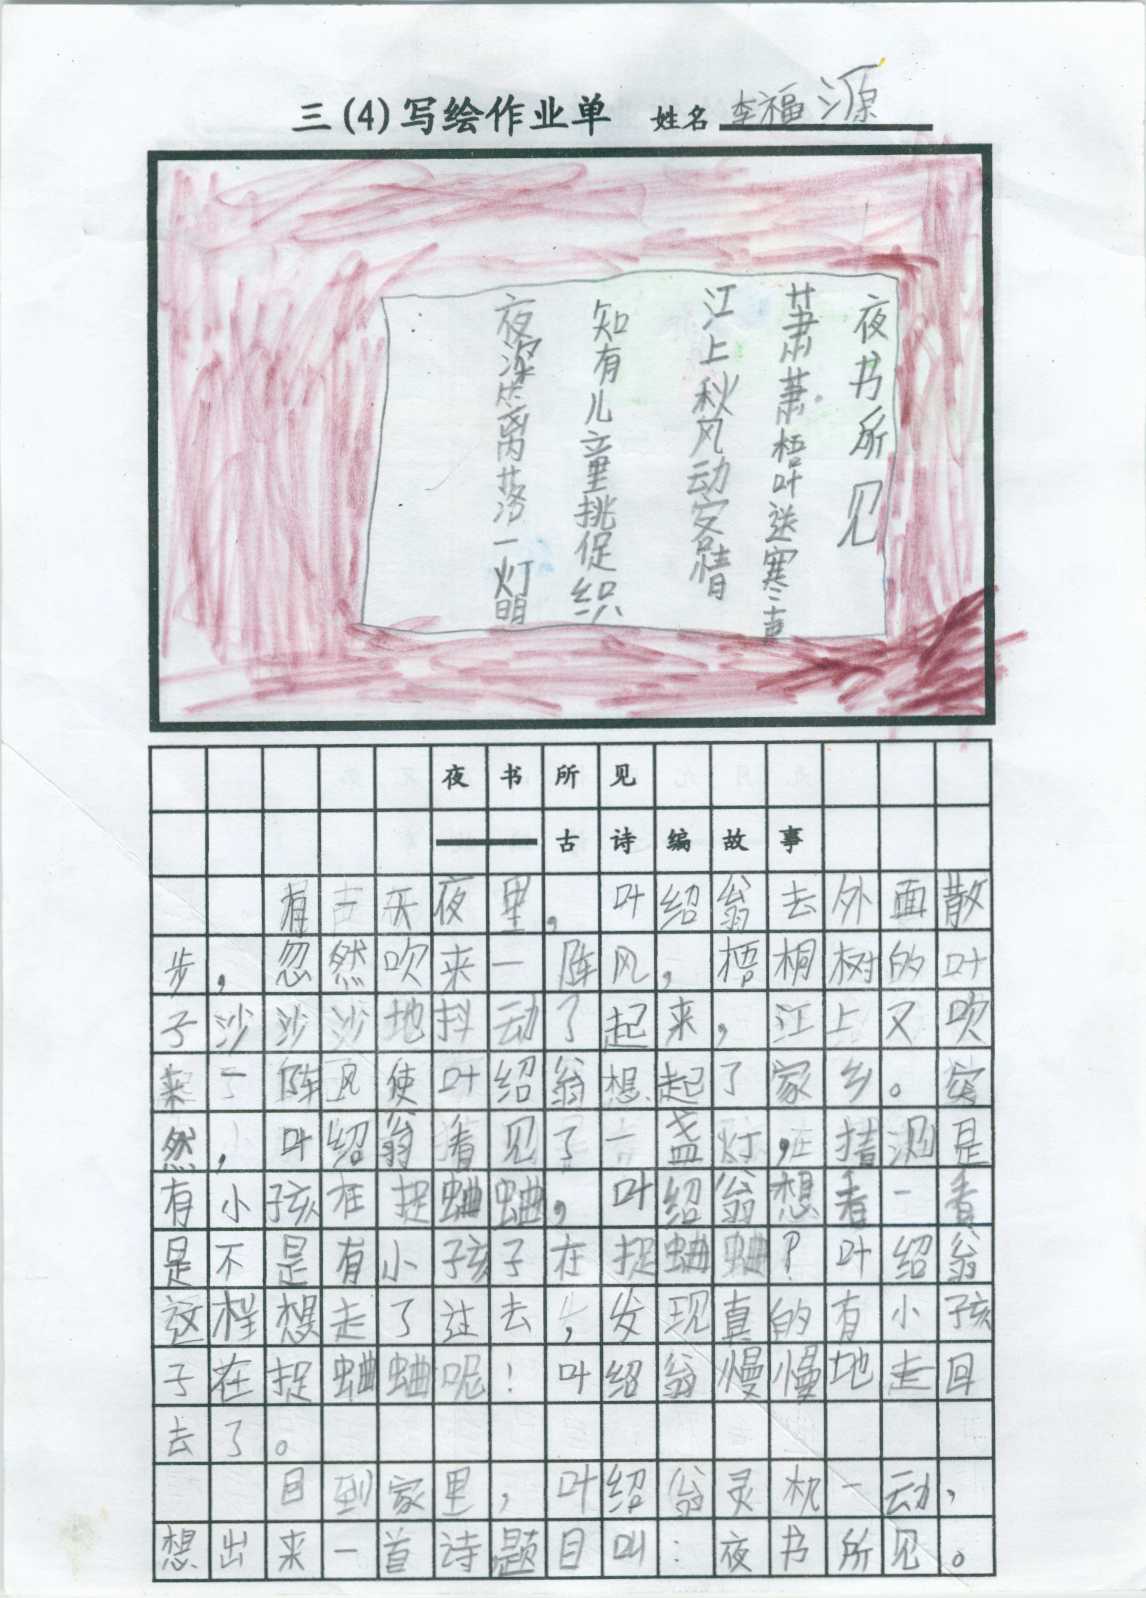 三(4)写绘作业单 姓名 李福源
夜书所见
萧萧梧叶送寒声
江上秋风动客情
知有儿童挑促织
夜深篱落一灯明
夜书所见
——古诗编故事
有一天夜里，叶绍翁去外面散
步，忽然吹来一阵风，梧桐树的叶
子沙沙沙地抖动了起来，江上又吹
来了阵风使叶绍翁想起了家乡。突
然，叶绍翁看见了一盏灯，在猜测是
有小孩在捉蛐蛐，叶绍翁想看一看
是不是有小孩子在捉蛐蛐？叶绍翁
这样想走了过去，发现真的有小孩
子在捉蛐蛐呢！叶绍翁慢慢地走回
去了。
回到家里，叶绍翁灵机一动，
想出来一首诗题目叫：夜书所见。